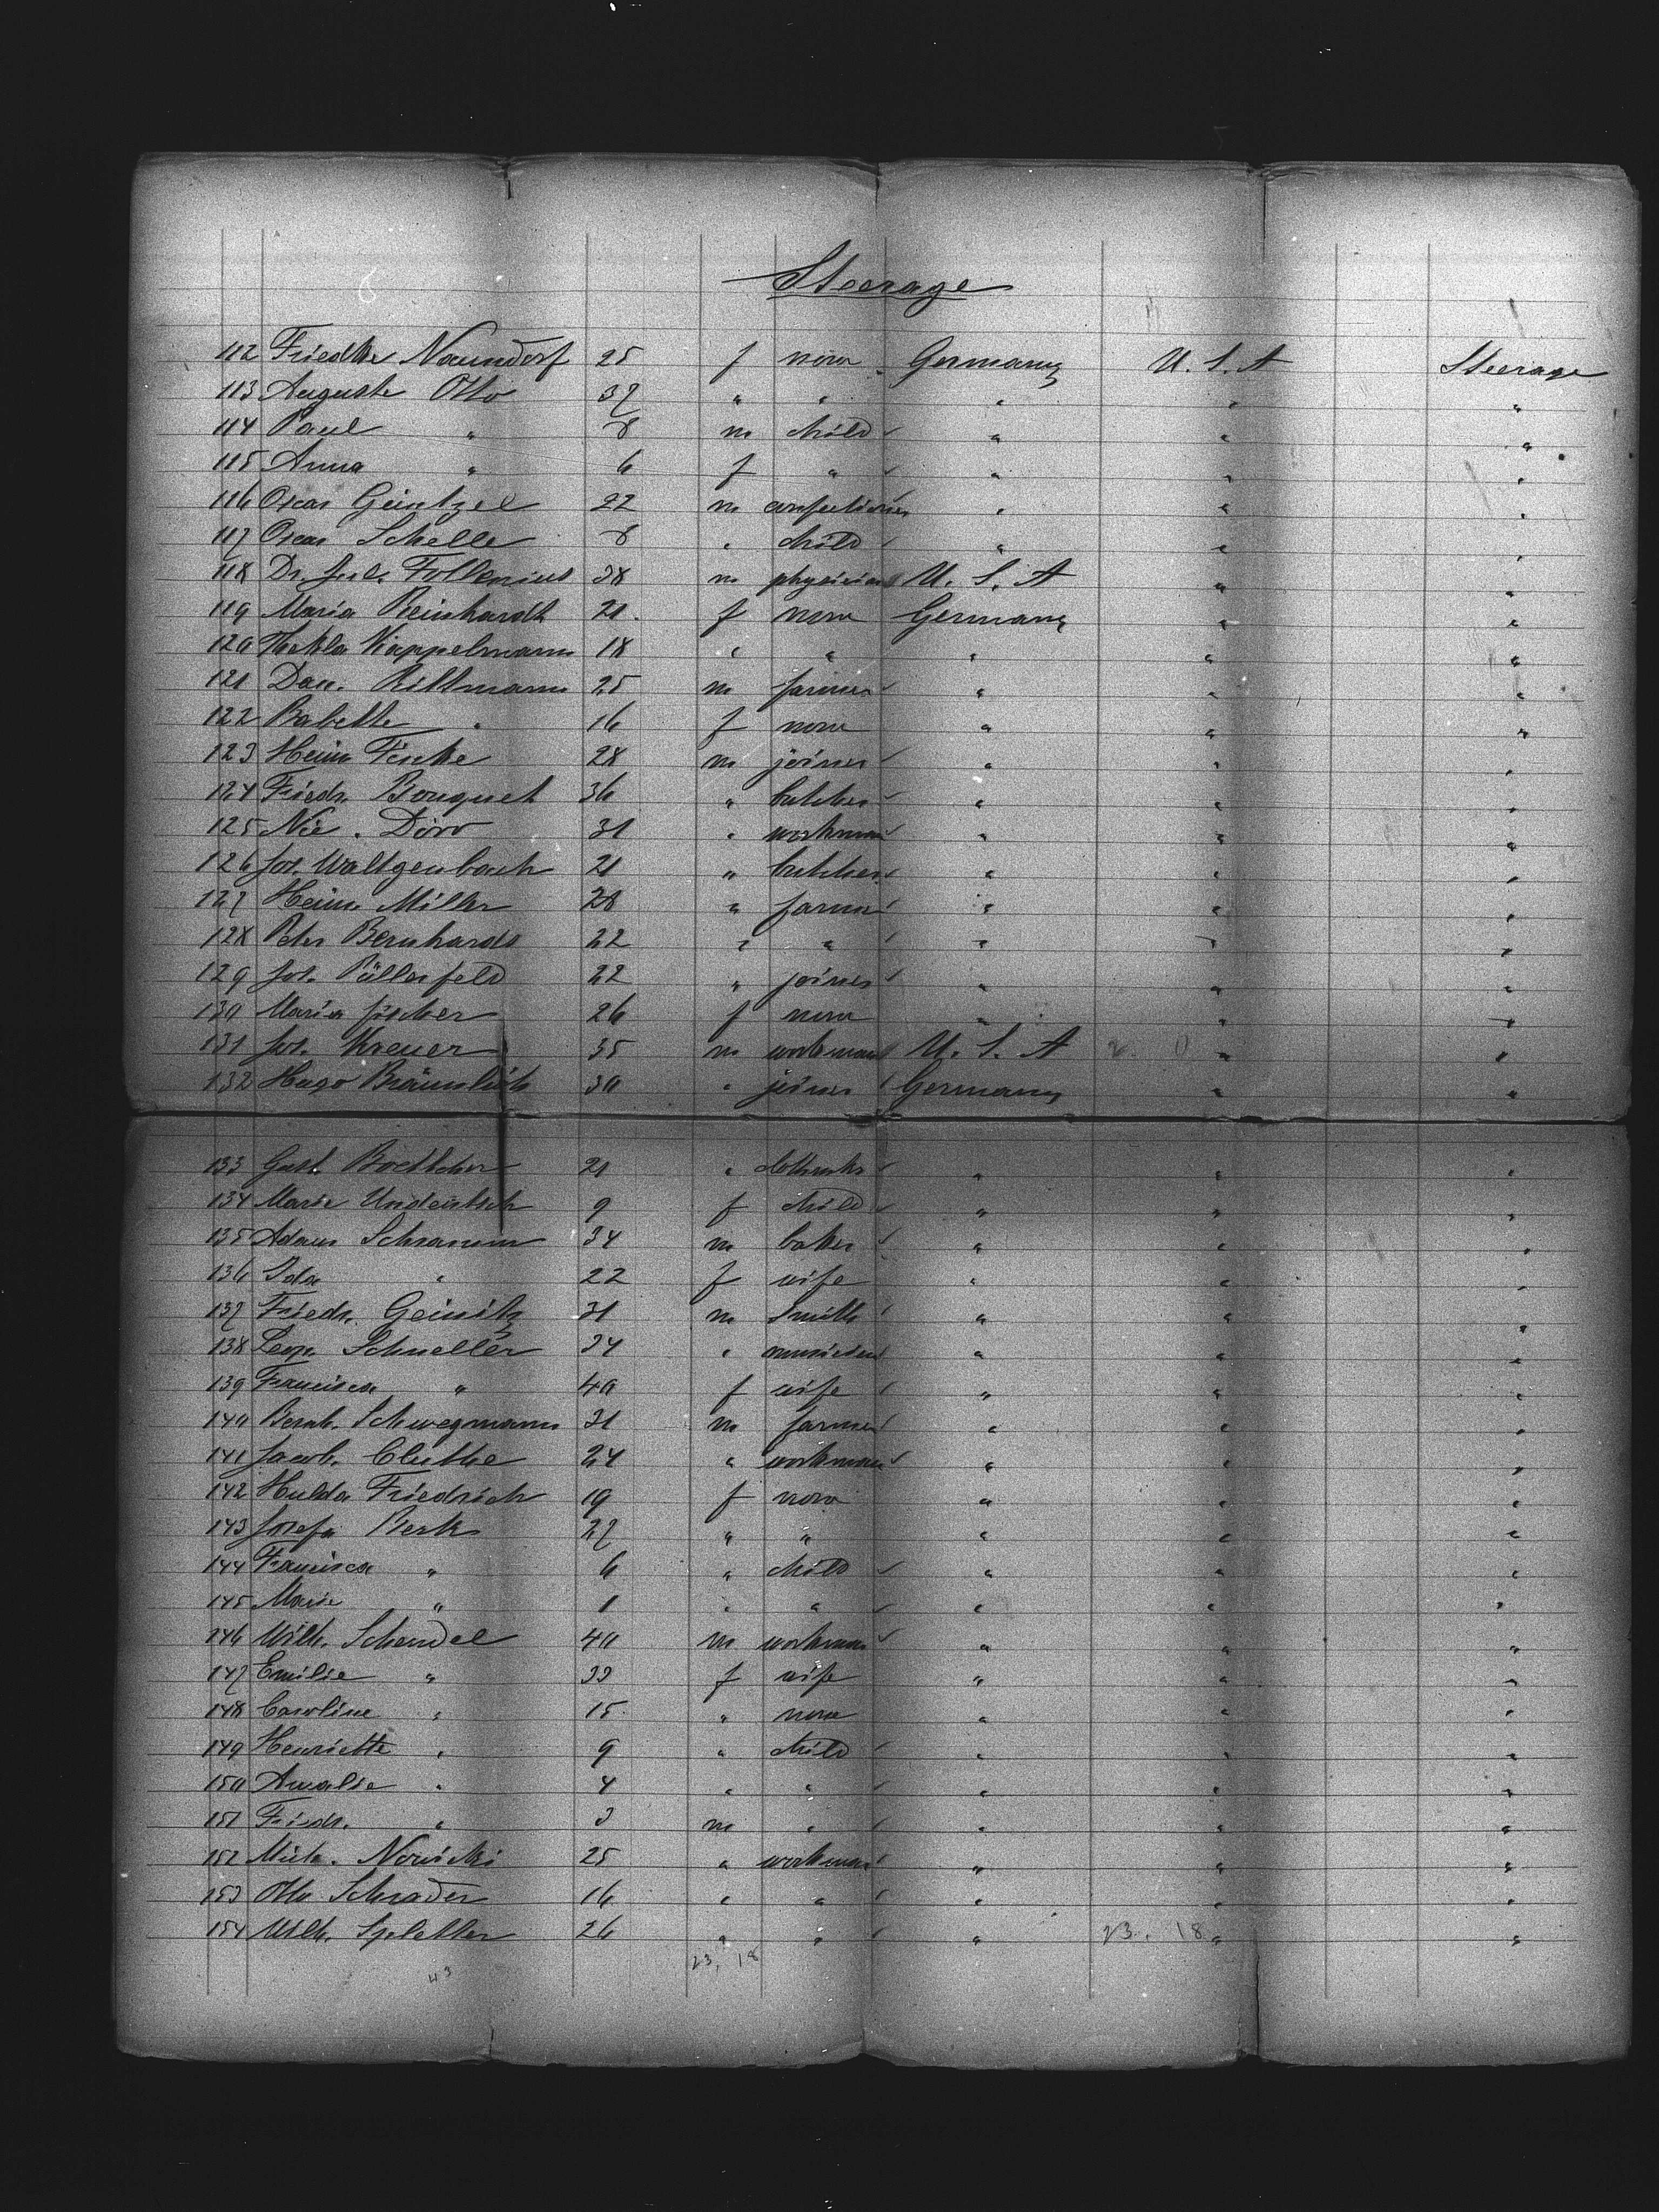 Steerage
112 Friedke Naundorf 25 f none Germany U. S. A Steerage
113 Auguste Otto 37 " " " " "
114 Paul " 8 m child " " "
115 Anna " 6 f " " " "
116 Oscar Geintzel 22 m confectioner " " "
117 Oscar Schelle 8 " child " " "
118 Dr. Jul. Follenius 38 m physician U. S. A " "
119 Maria Reinhardt 21 f none Germany " "
120 Hekla Kappelmann 18 " " " " "
121 Dan. Rittmann 25 m farmer " " "
122 Babette " 16 f none " " "
123 Heinr. Finke 28 m joiner " " "
124 Friedr. Bouquet 36 " butcher " " "
125 Nic. Dörr 31 " workman " " "
126 Jos. Waltgenbach 21 " butcher " " "
127 Heinr. Miller 28 " farmer " " "
128 Peter Bernhards 22 " " " " "
129 Joh. Püllerfeld 22 " joiner " " "
130 Maria Fischer 26 f none " " "
131 Joh. Kreuer 35 m workman U. S. A 2. 0 " "
132 Hugo Bräunlich 30 " joiner Germany " "
133 Gust. Boettcher 21 " " " "
134 Marie Undeutsch 9 f child " " "
135 Adam Schramm 34 m baker " " "
136 Ida " 22 f wife " " "
137 Friedr. Geinitz 31 m Smith " " "
138 Leop. Schneller 34 " musician " " "
139 Francisca " 40 f wife " " "
140 Bernh. Schwegmann 31 m farmer " " "
141 Jacob. Cluthe 24 " workman " " "
142 Hulda Friedrich 19 f none " " "
143 Josefa Berk 27 " " " " "
144 Francisca " 6 " child " " "
145 Marie " 1 " " " " "
146 Wilh. Schendel 40 m workman " " "
147 Emilie " 33 f wife " " "
148 Caroline " 15 " none " " "
149 Henriette " 9 " child " " "
150 Amalie " 4 " " " " "
151 Friedr. " 3 m " " " "
152 Mich. Nowicki 25 " workman " " "
153 Otto Schrader 16 " " " " "
154 Wilh. Spletter 26 " " " 23. 18 " "
43 23. 18